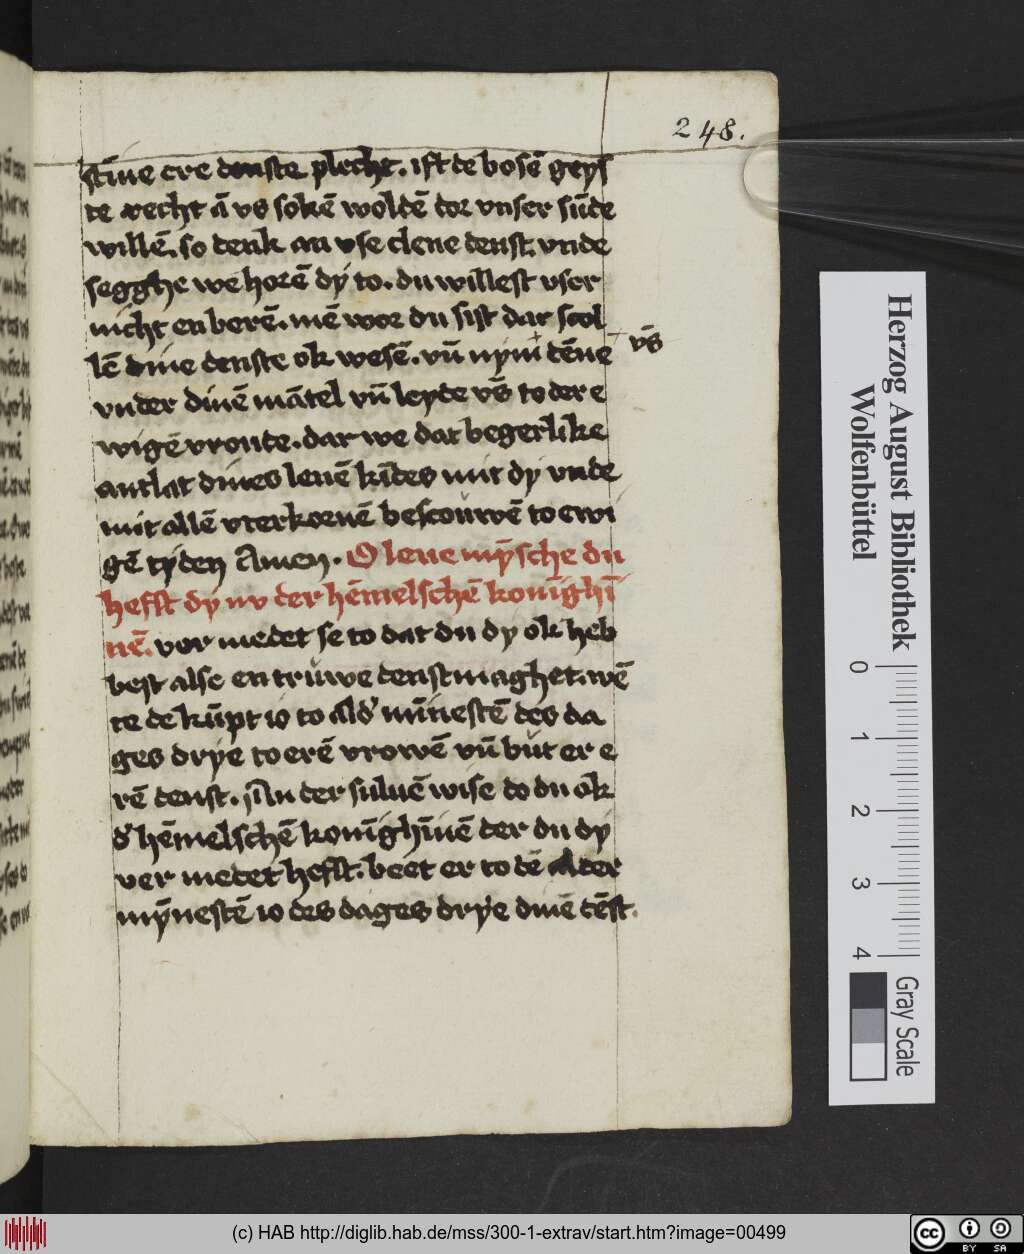 248.
stūne ere denste plecht. ist de bosē geys
te recht ā vs sokē woldē dor vnser sūde
willē. so denk an vse clene denst. vnde
segghe we horē dy to. du willest vser
nicht enberē. mē wor du sist dar scol
lē dine denste ok wesē. vn̄ nym dēne vs̄
vnder dinē mātel vn̄ leyde vs̄ to der e
wigē vroude. dar we dat begerlike
antlat dines leuē kīdes mit dy vnde
mit allē vterkornē bescouwē to ewi
gē tyden Amen. O leue mȳsche du
hefft dy nv der hēmelschē konīghī
nē. vor medet se to dat du dy ok heb
best alse en truwe denstmaghet. wē
te de kūpt io to ald' mīnestē des da
ges drye to erē vrowē vn̄ būt er e
rē denst. An der suluē wise do du ok
d' hēmelschē konīghīnē der du dy
ver medet hefst. beet er to dē alder
mȳnestē io des dages drye dinē dēst.
Herzog August Bibliothek
Wolfenbüttel
0 1 2 3 4
Gray Scale
(c) HAB http://diglib.hab.de/mss/300-1-extrav/start.htm?image=00499
cc BY SA